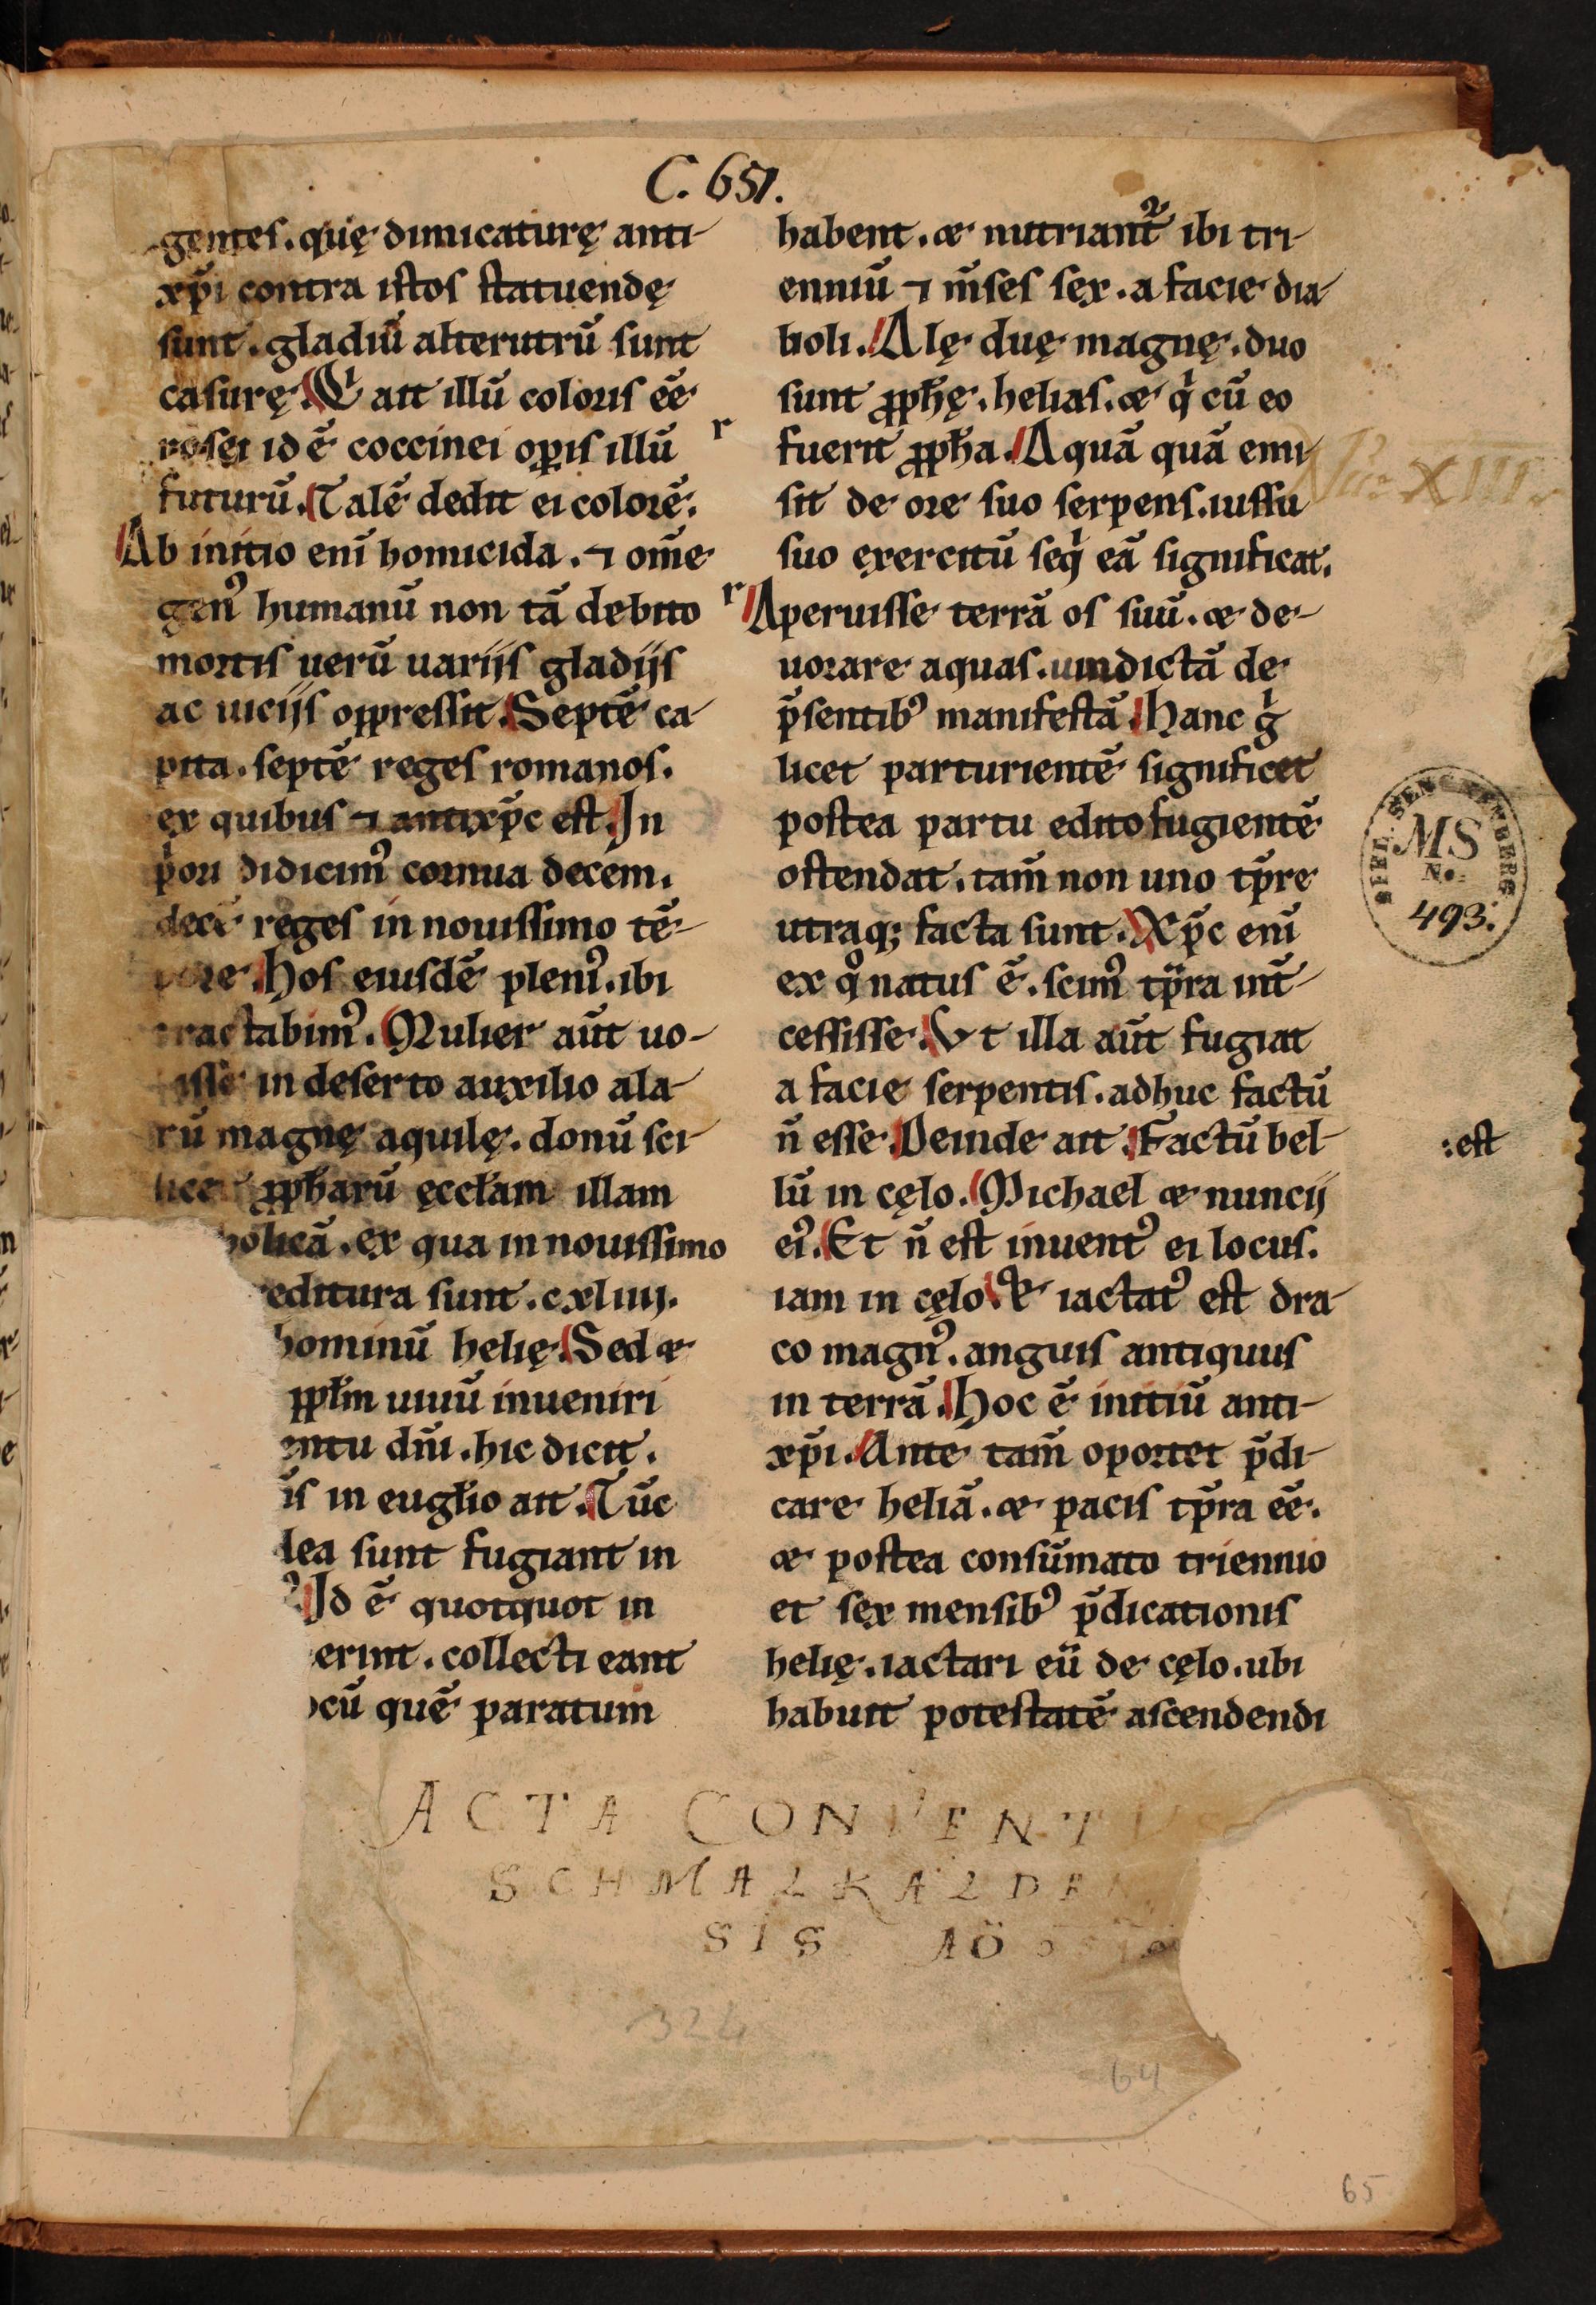 C. 651.
gentes. quę dimicaturę anti-
xp̄i contra istos statuendę
sunt. gladiū alterutrū sunt
casurę. Qͥ ait illū coloris eē
rosei id ē coccinei oꝑis illū
futurū. Talē dedit ei colorē.
Ab initio enī homicida. ⁊ om̄e
genꝰ humanū non tā debito
mortis uerū uarijs gladijs
ac uicijs oppressit. Septē ca-
pita. septē reges romanos.
ex quibus ⁊ antixp̄c est. In
pͥori didicimꝰ cornua decem.
decē reges in nouissimo tē-
pore. Hos eiusdē plenꝰ. ibi
tractabimꝰ. Mulier aūt uo-
asse in deserto auxilio ala-
rū magnę aquilę. donū sci-
licet ꝓph̄arū ęccl̄am illam
holicā. ex qua in nouissimo
editura sunt. cxliiij.
hominū helię. Sed æ
ppl̄m uiuū inueniri
entu dn̄i. hic dicit.
is in eugl̄io ait. Tūc
dea sunt fugiant in
Id ē quotquot in
erint. collecti eant
ocū quē paratum
r
r
habent. æ nutriant᷑ ibi tri-
enniū ⁊ m̄ses sex. a facie dia-
boli. Alę duę magnę. duo
sunt ꝓph̄ę. helias. æ qͥ cū eo
fuerit ꝓph̄a. Aquā quā emi-
sit de ore suo serpens. iussu
suo exercitū seqͥ eā significat.
Aperuisse terrā os suū. æ de-
uorare aquas. uindictā de
p̄sentibꝰ manifestā. Hanc gͥ
licet parturientē significet
postea partu edito fugientē
ostendat. tam̄ non uno tp̄re
utraq; facta sunt. Xp̄c enī
ex qͦ natus ē. scimꝰ tp̄ra int̄-
cessisse. Vt illa aūt fugiat
a facie serpentis. adhuc factū
n̄ esse. Deinde ait. Factū bel-
lū in cęlo. Michael æ nuncij
eiꝰ. Et n̄ est inuentꝰ ei locus.
iam in cęlo. & iactatꝰ est dra-
co magnꝰ. anguis antiquus
in terrā. Hoc ē initiū anti-
xp̄i. Ante tam̄ oportet p̄di-
care heliā. æ pacis tp̄ra eē.
æ postea consūmato triennio
et sex mensibꝰ p̄dicationis
helię. iactari eū de cęlo. ubi
habuit potestatē ascendendi
XIII
BIBL. SENCKENBERG
MS
No.
493.
:est
ACTA CONVENTV
SCHMALKALDEN
SIS Aö
324
64
65